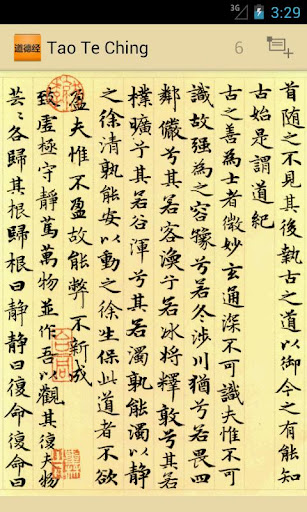 3G
3:29
道德经
Tao Te Ching
6
首隨之不見其後執古之道以御今之有能知
古始是謂道紀
古之善為士者微妙玄通深不可識夫惟不可
識故強為之容豫兮若冬涉川猶兮若畏四
鄰儼兮其若客渙兮若冰將釋敦兮其若
樸曠兮其若谷渾兮其若濁孰能濁以靜
之徐清孰能安以動之徐生保此道者不欲
盈夫惟不盈故能弊不新成
致虛極守靜篤萬物並作吾以觀其復夫物
芸芸各歸其根歸根曰靜靜曰復命復命曰